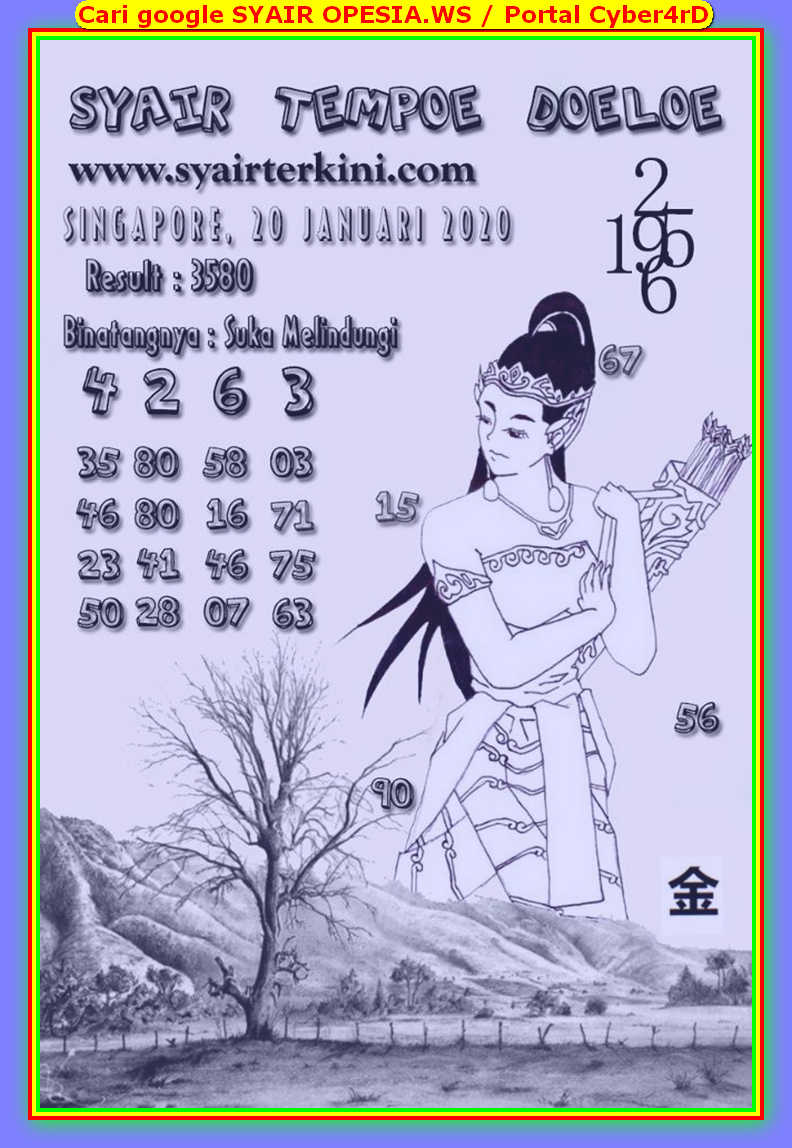 Cari google SYAIR OPESIA.WS / Portal Cyber4rD
SYAIR TEMPOE DOELOE
www.syairterkini.com
SINGAPORE, 20 JANUARI 2020
Result : 3580
Binatangnya : Suka Melindungi
2
1965
6
4 2 6 3
67
35 80 58 03
46 80 16 71
15
23 41 46 75
50 28 07 63
56
90
金